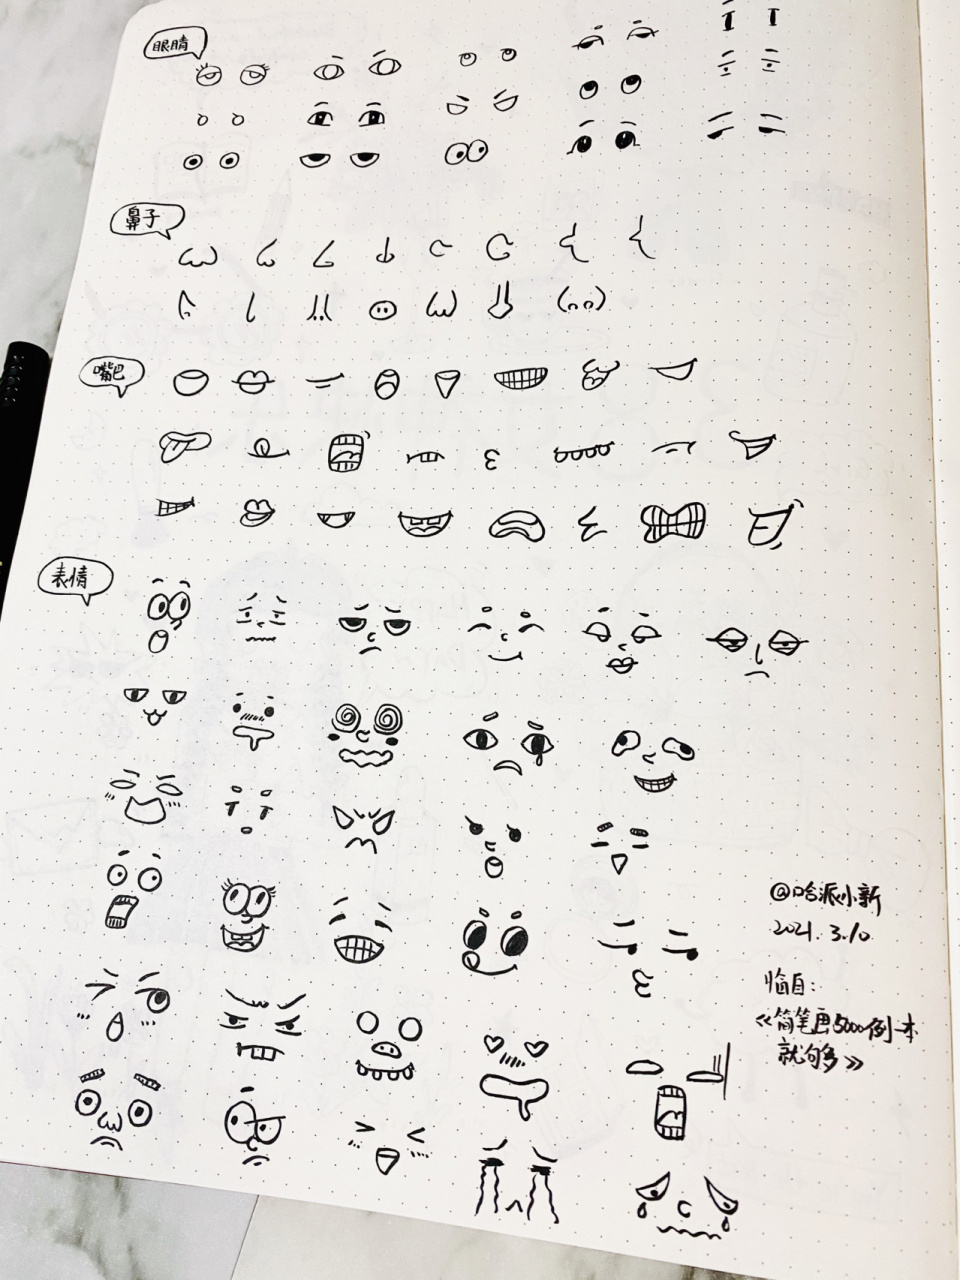 眼睛
鼻子
嘴巴
表情
@哈派小新
2021.3.10
临自:
《简笔画5000例一本
就够多》